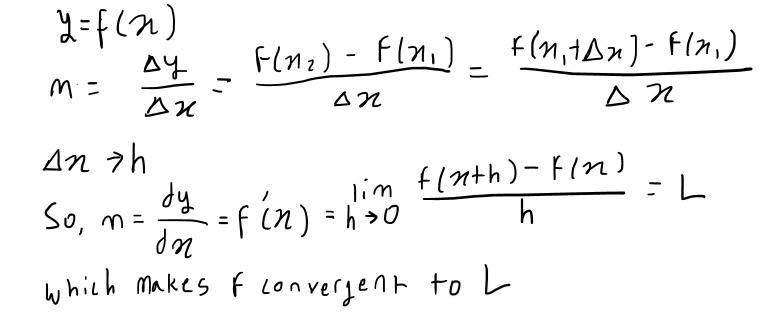 y=f(x)
m = Δy/Δx = f(x₂) - f(x₁)/Δx = f(x₁+Δx] - f(x₁)/Δx
Δx → h
So, m = dy/dx = f'(x) = lim h→0 f(x+h) - f(x)/h = L
which makes f convergent to L